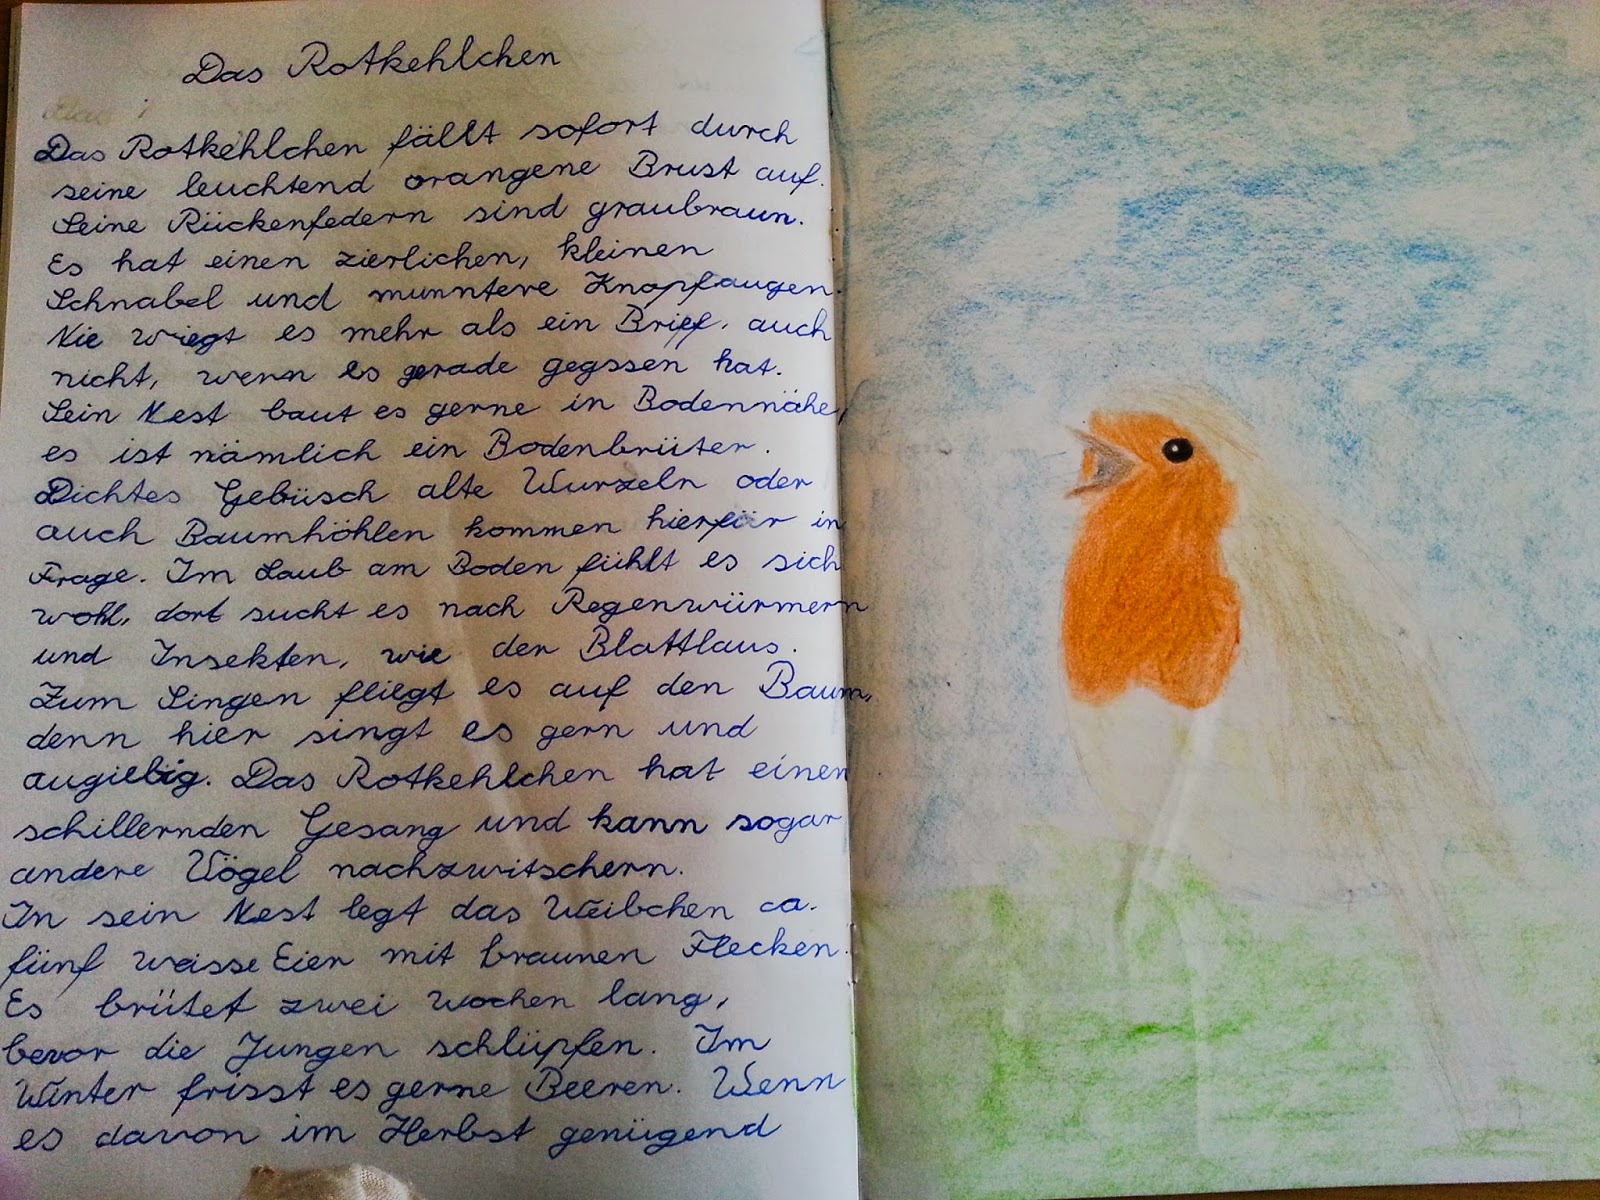 Das Rotkehlchen
Das Rotkehlchen fällt sofort durch
seine leuchtend orangene Brust auf.
Seine Rückenfedern sind graubraun.
Es hat einen zierlichen, kleinen
Schnabel und munntere Knopfaugen.
Nie wiegt es mehr als ein Brief, auch
nicht, wenn es gerade gegssen hat.
Sein Nest baut es gerne in Bodennähe,
es ist nämlich ein Bodenbrüter.
Dichtes Gebüsch alte Wurzeln oder
auch Baumhöhlen kommen hierfür in
Frage. Im Laub am Boden fühlt es sich
wohl, dort sucht es nach Regenwürmern
und Insekten, wie der Blattlaus.
Zum Singen fliegt es auf den Baum,
denn hier singt es gern und
augiebig. Das Rotkehlchen hat einen
schillernden Gesang und kann sogar
andere Vögel nachzwitschern.
In sein Nest legt das Weibchen ca.
fünf weisse Eier mit braunen Flecken.
Es brütet zwei wochen lang,
bevor die Jungen schlüpfen. Im
Winter frisst es gerne Beeren. Wenn
es davon im Herbst genügend